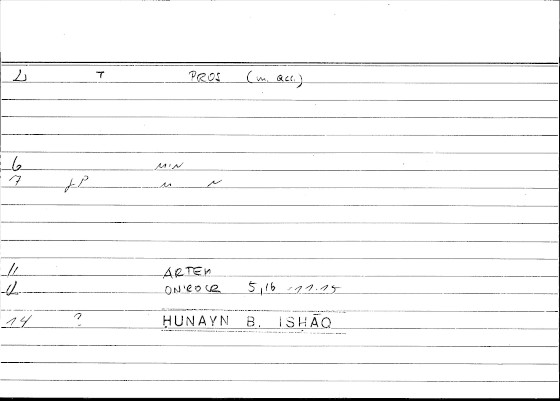 T PROS (m. acc.)
6 MIN
7 JP M N
11 ARTEM
ONIROCR 5,16 11.15
14 ? HUNAYN B. ISHĀQ